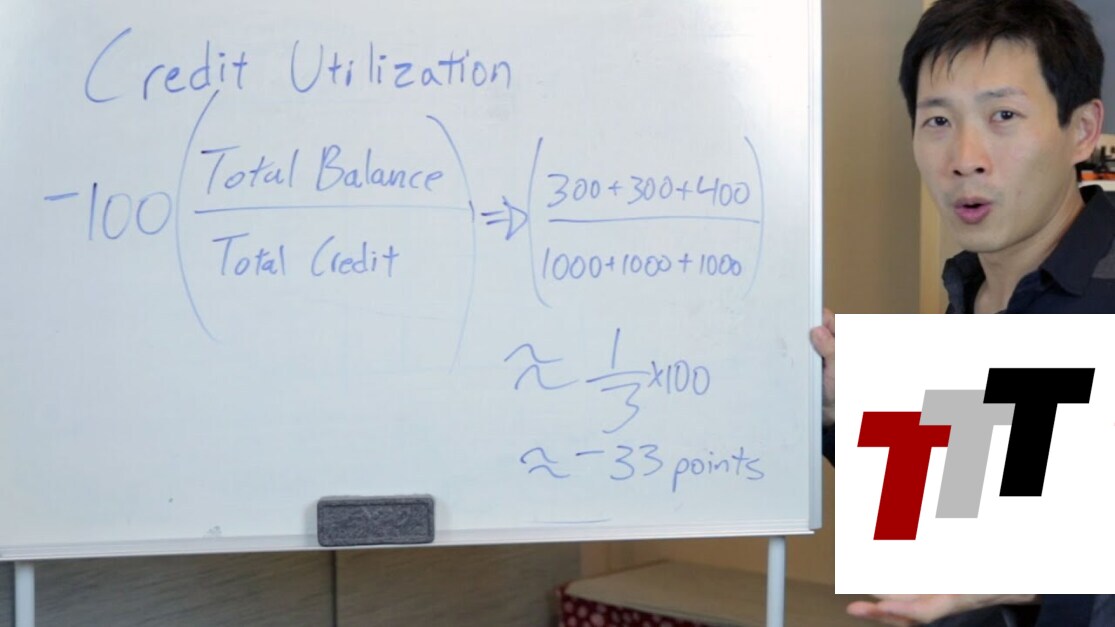 Credit Utilization
-100 (Total Balance / Total Credit) => (300+300+400 / 1000+1000+1000)
≈ 1/3 x100
≈ -33 points
TTT